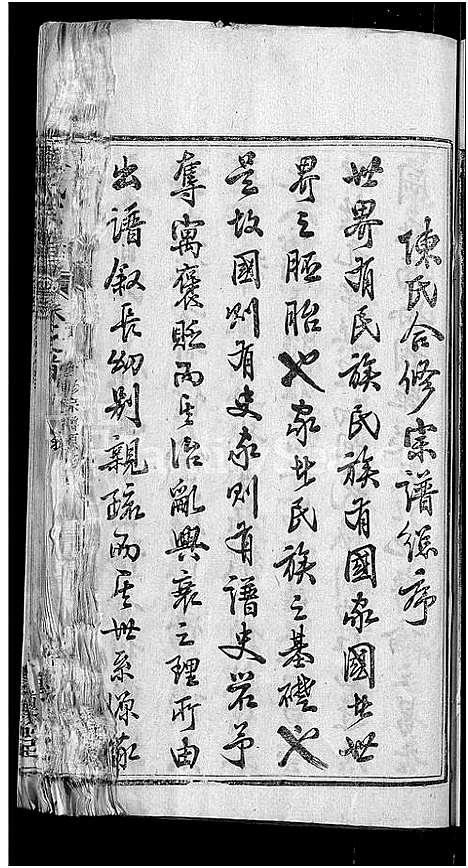 陳氏合修宗譜總序
世界有民族民族有國家國者世
界之胚胎也家者民族之基礎也
是故國則有史家則有譜史嚴予
奪寓褒貶而其治亂興衰之理所由
出譜叙長幼別親疏而其世系源